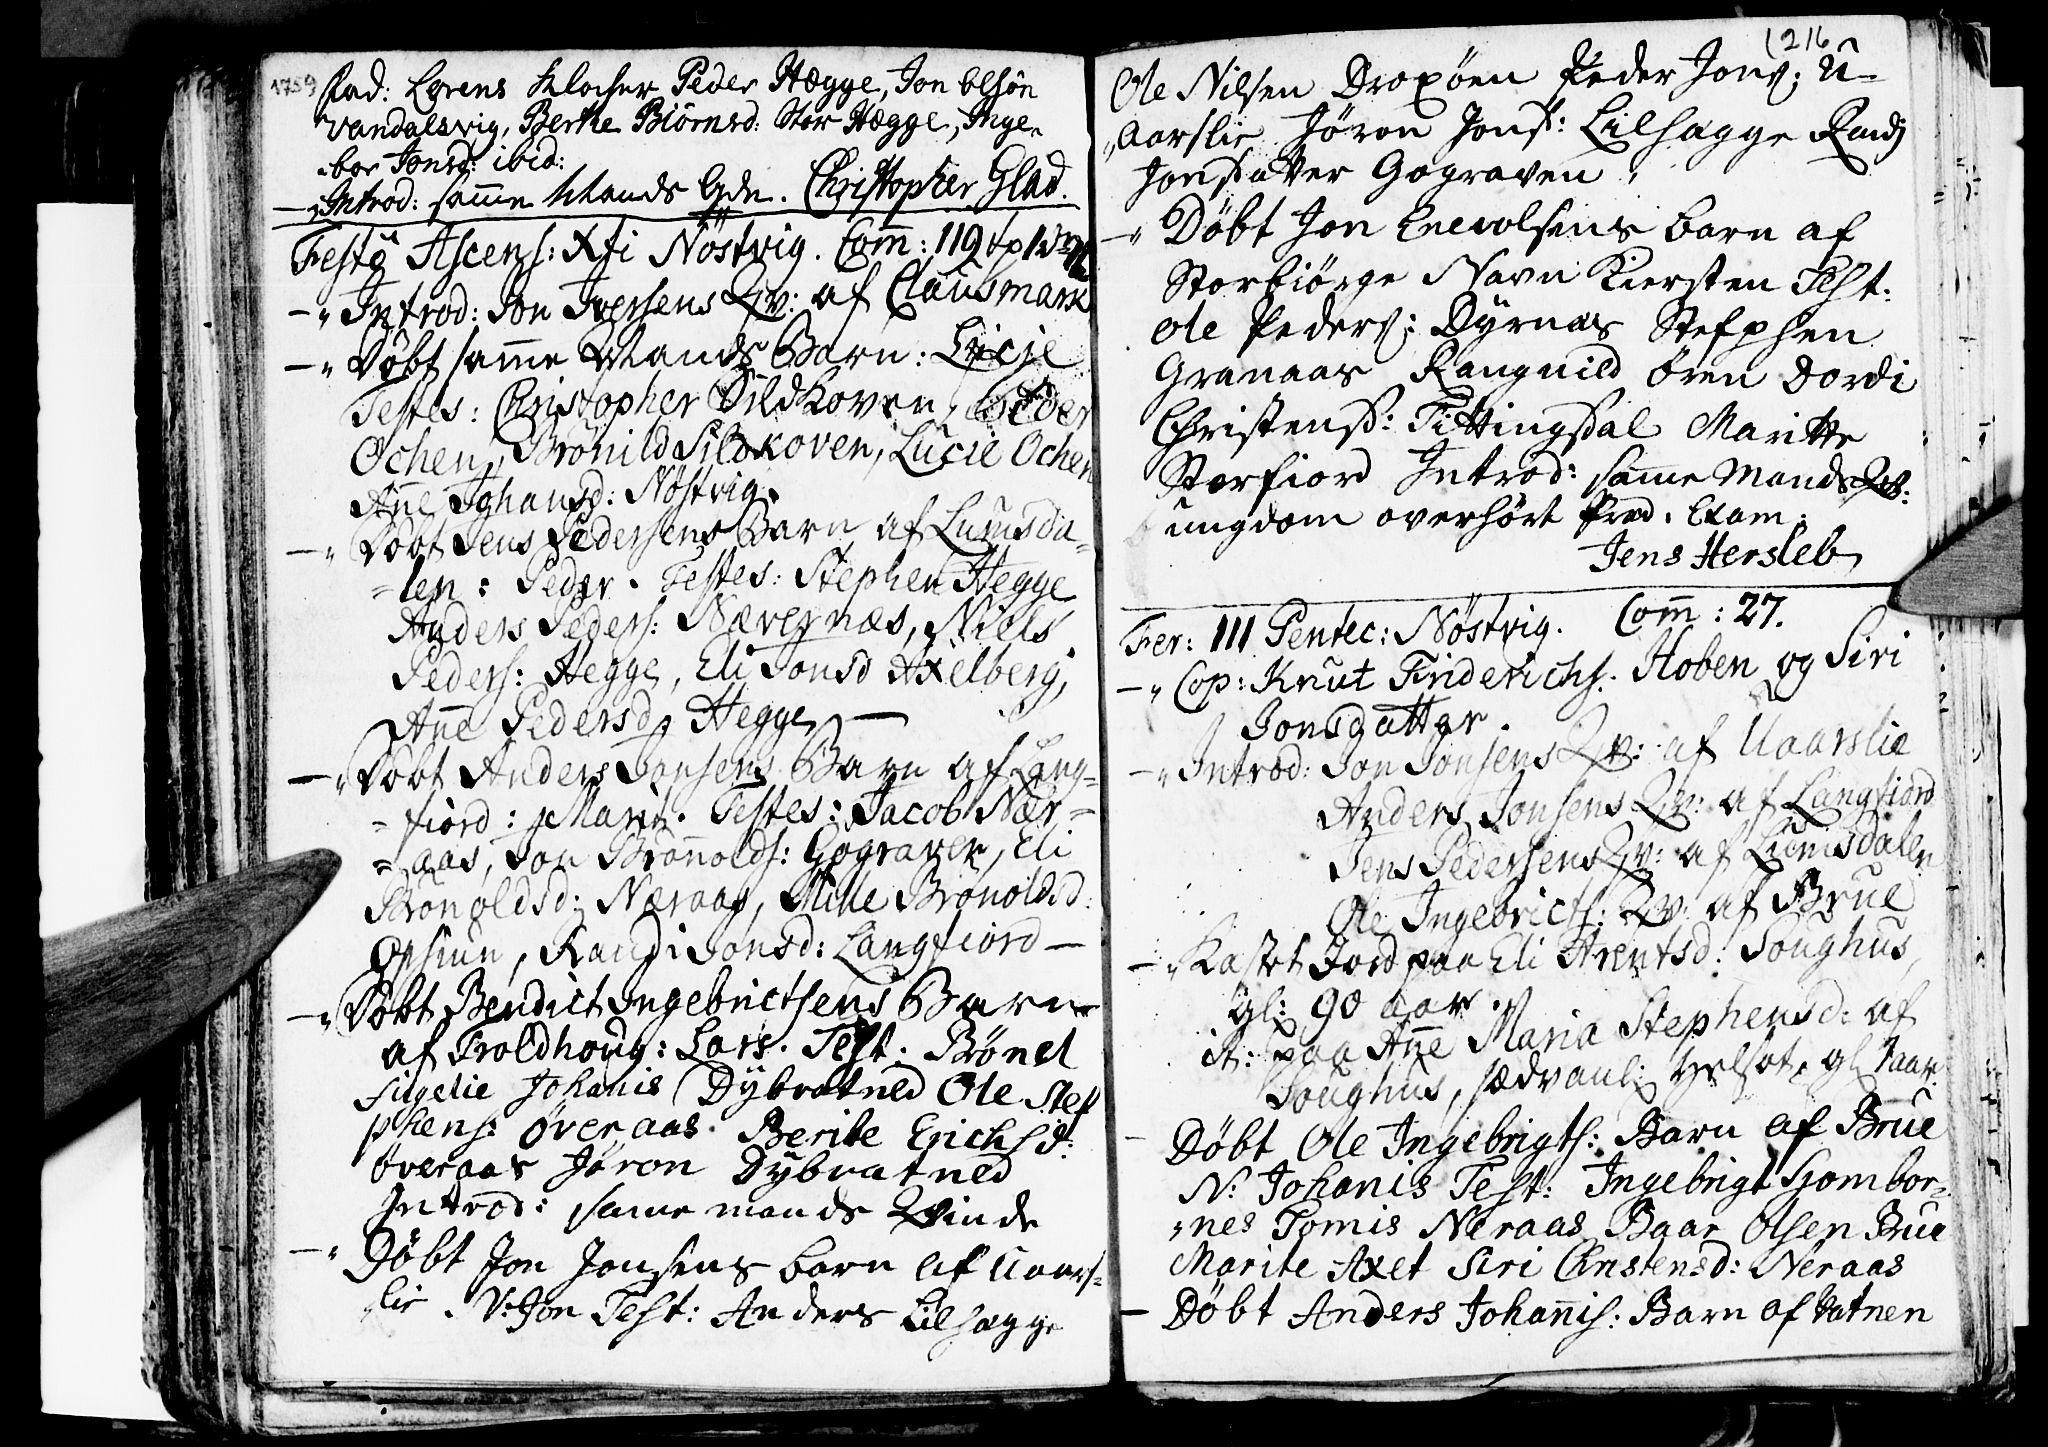 1759
Rad: Lorens Klocher Peder Hægge, Jon Olsön
Vandalsvig, Berthe Biörnsd: Stor Hægge, Inge-
bor Jonsd: ibid:
Introd: samme Mands Qde. Christopher Glad.
Festo Ascens: Xti Nöstvig. Comm: 119
Introd: Jon Iversens Qv: af Clausmark
Döbt samme Mands Barn: Lucie
Testes: Christopher Sildkoven, Peder
Ochen, Brönild Sildkoven, Lucie Ochen
Anne Johansd: Nöstvig.
Döbt Jens Pedersens Barn af Lumsda-
-len: Peder. Testes: Stephen Hegge
Anders Peders: Nævernæs, Niels
Peders: Hegge, Eli Jonsd Axelberg,
Anne Pedersd. Hegge
Döbt Anders Jonsens Barn af Lang-
-fiord: Marit. Testes: Jacob Nær-
-aas, Jon Bronnolds: Gograven, Eli
Bronoldsd: Næraas, Mille Bronoldsd:
Opsiun, Randi Jonsd: Langfiord
Döbt Bendict Ingebrictsens Barn
af Troldhoug: Lars. Test. Brönel
Fugelie Johanis Dybvatned Ole Stef
phens: Överaas Berite Erichsd:
Överaas Jöron Dybvatned
Introd: samme mands Qvinde
Döbt Jon Jonsens barn af Uaars-
lie. N: Jon Test: Anders Lilhægge
216
Ole Nilsen Droxöen Peder Jons: U-
Aarslie Jöron Jonsd: Lilhægge Randj
Jonsdatter Gograven
Döbt Jon Enevolsens barn af
Storbiörge Navn Kiersten Test:
Ole Peders: Dyrnæs Stefphen
Granaas Rangnild Ören Dordi
Christensd: Fittingsdal Maritte
Storfiord Introd: samme Mands Qv:
ungdom overhört Præd. Exam:
Jens Hersleb
Fer: III Pentec: Nöstvig. Comm: 27.
Cop: Knut Friderichs. Hoben og Siri
Jonsdatter.
Introd: Jon Jonsens Qv: af Uaarslie
Anders Jonsens Qv: af Langfiord
Jens Pedersens Qv: af Lumsdalen
Ole Ingebricts: Qv: af Brue
Kastet Jord paa Eli Arentsd: Soughus,
gl: 90 aar.
it: paa Anne Maria Stephensd: af
Soughus, sædvanl: Helsot, gl. 1 aar.
Döbt Ole Ingebrigts: Barn af Brue
N: Johanis Test: Ingebrigt Hombor-
nes Tomis Neraas Baar Olsen Brue
Marite Axet Siri Christensd: Neraas
Döbt Anders Johannis: Barn af Vatnen